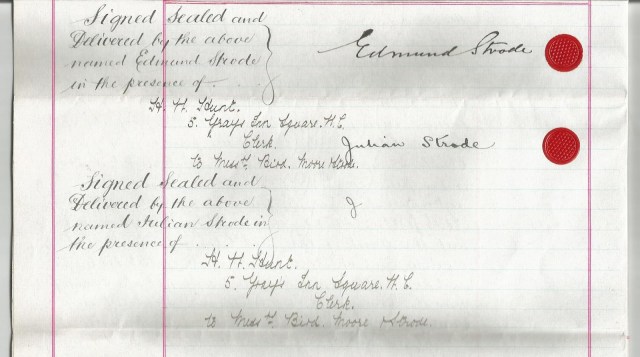 Signed Sealed and
Delivered by the above
named Edmund Strode
in the presence of
Edmund Strode
H. H. Hunt.
5. Grays Inn Square. W.C.
Clerk.
to Messrs. Bird. Moore & Strode.
Julian Strode
Signed Sealed and
Delivered by the above
named Julian Strode in
the presence of
J
H. H. Hunt.
5. Grays Inn Square. W.C.
Clerk.
to Messrs. Bird. Moore & Strode.